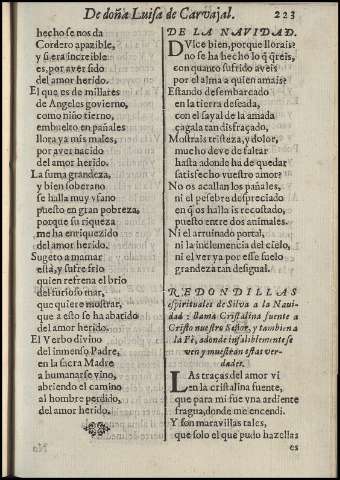 De doña Luisa de Carvajal. 223
hecho se nos da
Cordero apazible,
y si era increible
es, por aver sido
del amor herido.
El que es de millares
de Angeles govierno,
como niño tierno,
embuelto en pañales
llora ya mis males,
por aver nacido
del amor herido.
La suma grandeza,
y bien soberano
se halla muy ufano
puesto en gran pobreza,
porque su riqueza
me ha enriquezido
del amor herido.
Sugeto a mamar
està, y sufre frio
quien refrena el brio
del furioso mar,
que quiere mostrar,
que a esto se ha abatido
del amor herido.
El Verbo divino
del inmenso Padre,
en la sacra Madre
a humanarse vino,
abriendo el camino
al hombre perdido,
del amor herido.
DE LA NAVIDAD.
DVlce bien, porque llorais?
no se ha hecho lo q̃ quereis,
con quanto sufrido aveis
por el alma a quien amais?
Estando desembarcado
en la tierra deseada,
con el sayal de la amada
çagala tan disfraçado,
Mostrais tristeza, y dolor,
mucho deve de faltar
hasta adonde ha de quedar
satisfecho vuestro amor?
No os acallan los pañales,
ni el pesebre despreciado
en q̃ os halla is recostado,
puesto entre dos animales.
Ni el arruinado portal,
ni la inclemencia del cielo,
ni el ver ya por esse suelo
grandeza tan desigual.
REDONDILLAS
espirituales de Silva a la Navi-
dad: llama Cristalina fuente a
Cristo nuestro Señor, y tambien a
la Fè, adonde infaliblemente se
ven y muestran estas ver-
dades.
LAs traças del amor vi
en la cristalina fuente,
que para mi fue vna ardiente
fragua, donde me encendi.
Y son maravillas tales,
que solo el que pudo hazellas
es